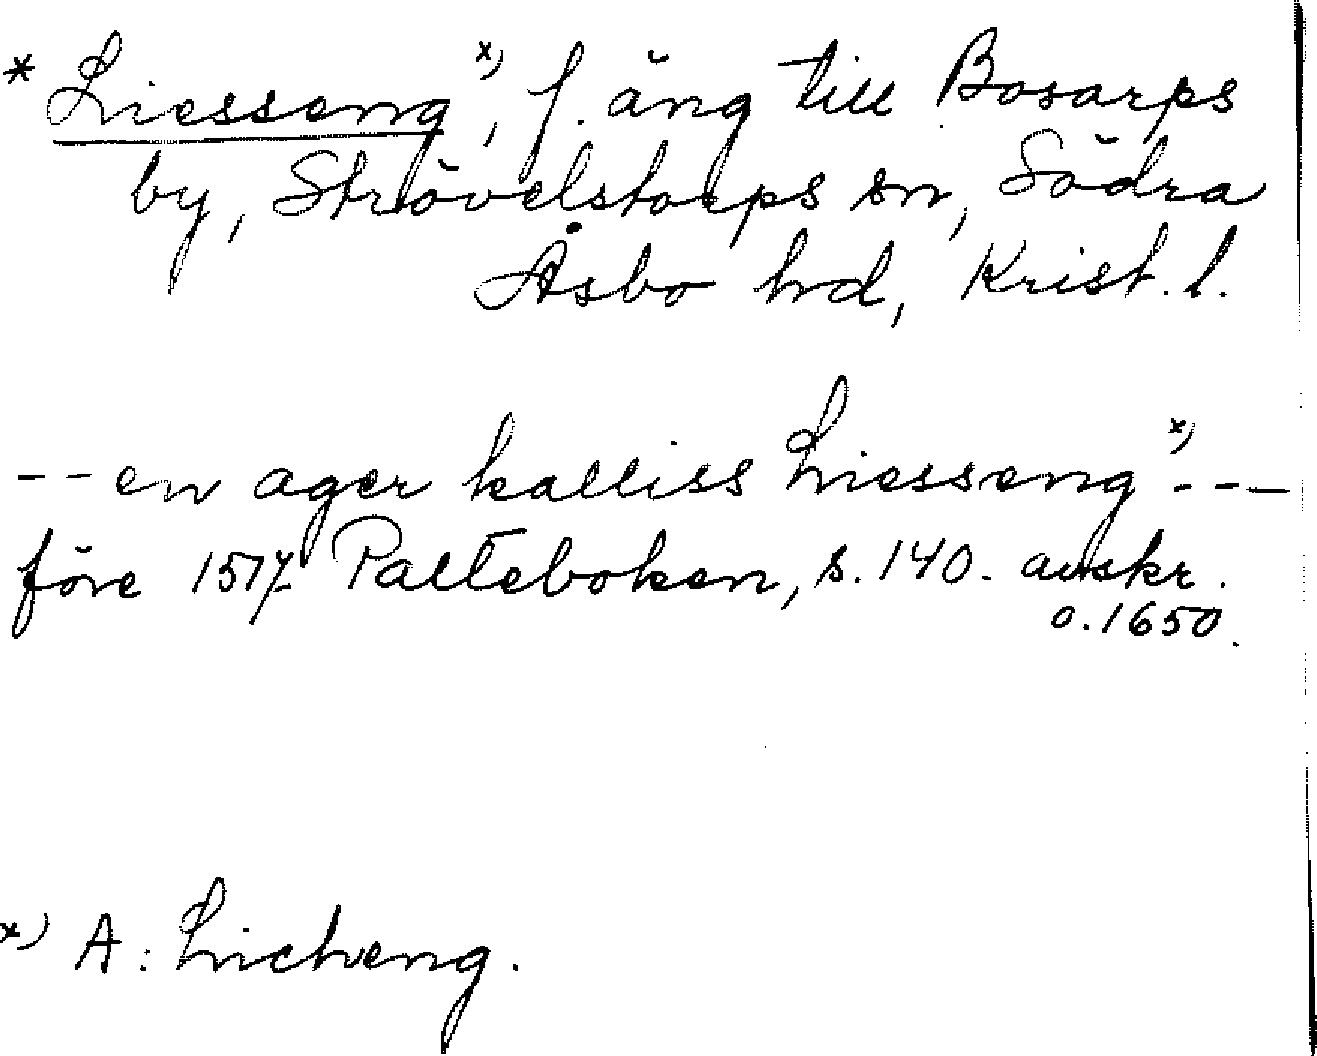 * Liesseng x), f. äng till Bosarps
by, Strövelstorps sn, Södra
Åsbo hd, Krist. l.
-- en ager kalliss Liesseng x) ---
före 1517. Palteboken, s. 140. avskr.
o. 1650.
x) A: Licheng.